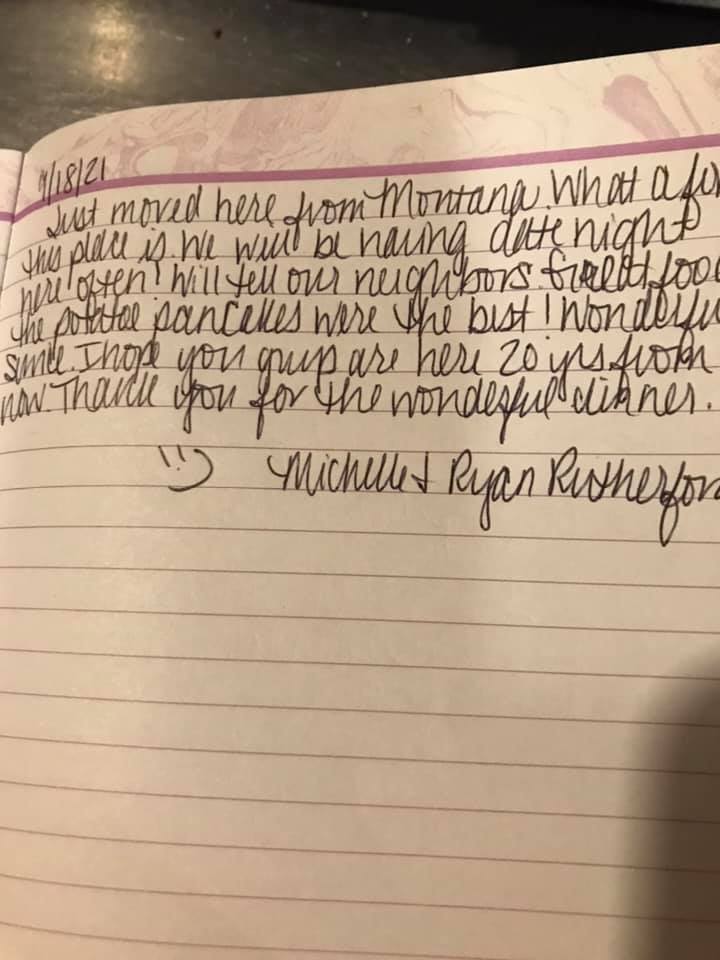 9/18/21
Just moved here from Montana. What a
this place is. We will be having date night
here often! Will tell our neighbors. Great foo
the potatoe pancakes were the best! Wonderfu
I hope you guys are here 20 yrs from
now. Thank you for the wonderful dinner.
:) Michelle & Ryan Rutherfor